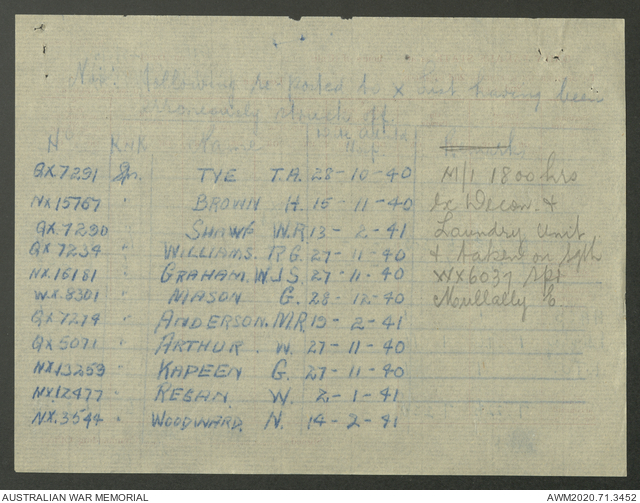 following reported to X List having been
erroneously struck off.
No Rank Name Remarks
QX7291 Spr. TYE T.A. 28-10-40 M/I 1800hrs
NX15767 " BROWN H. 15-11-40 ex Decon. &
QX.7230 " SHAW W.R 13-2-41 Laundry Unit
QX7234 " WILLIAMS. R G. 27-11-40 & taken on
NX.16181 " GRAHAM. W.J.S. 27-11-40 WX6037 Spr
WX.8301 " MASON G. 28-12-40 Mullally
QX7274 " ANDERSON. M.R. 19-2-41
QX5071 " ARTHUR. W. 27-11-40
NX.13253 " KADEEN G. 27-11-40
NX.12477 " REGAN. W. 2-1-41
NX.3544 " WOODWARD. N. 14-2-41
AUSTRALIAN WAR MEMORIAL AWM2020.71.3452